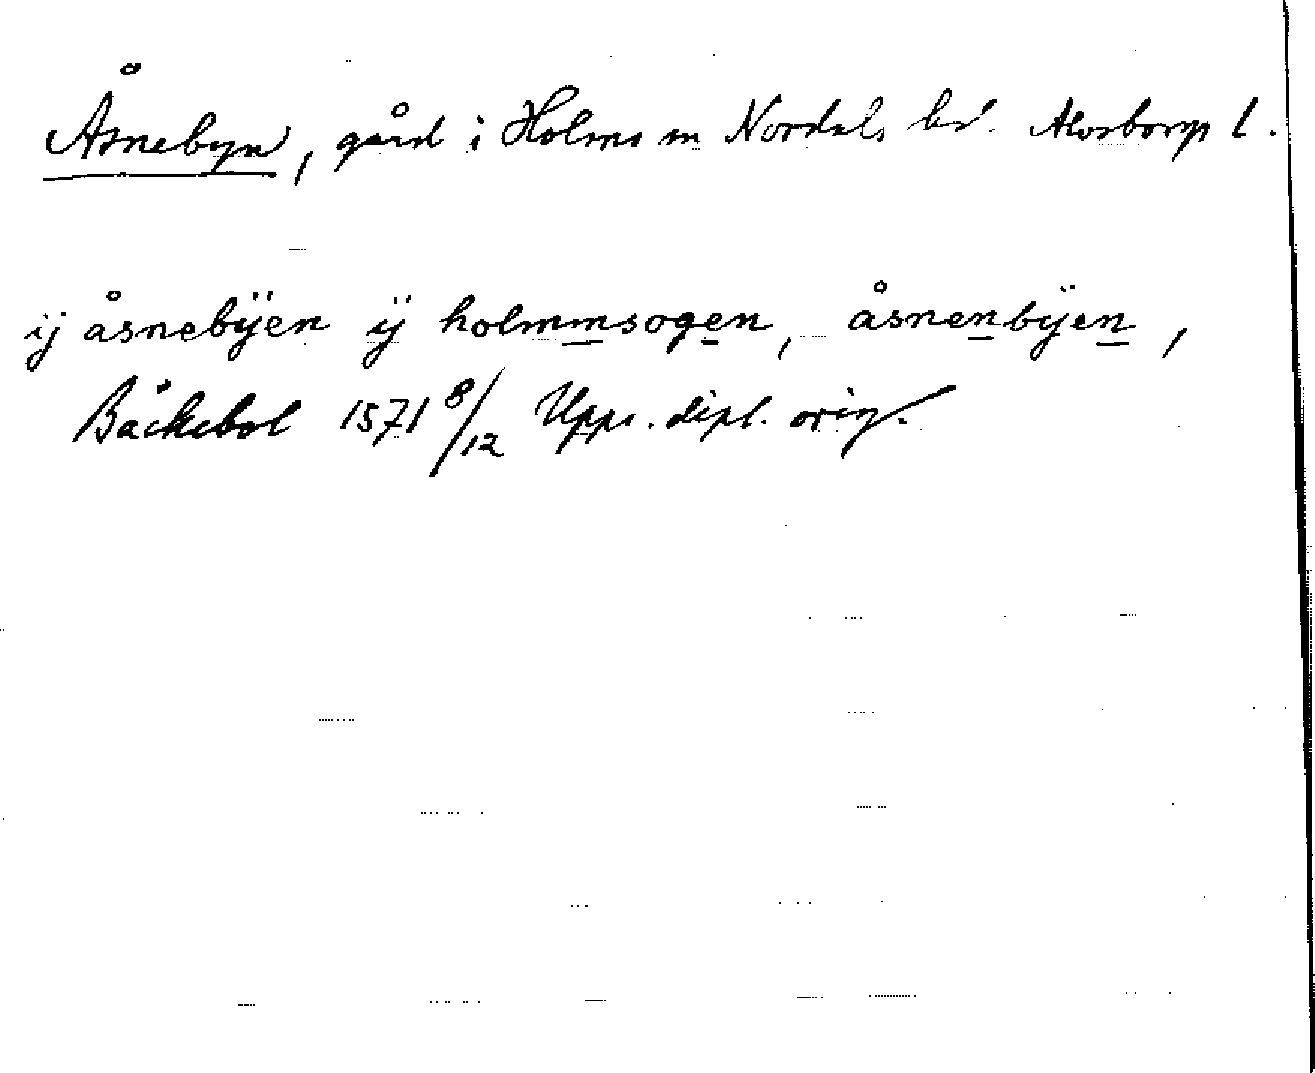 Åsnebyn, gård i Holms sn Nordals hd. Älvsborgs l.
ij åsnebÿen ÿ holmmsogen, åsnenbÿen,
Bäckebol 1571 8/12 Upps. dipl. orig.